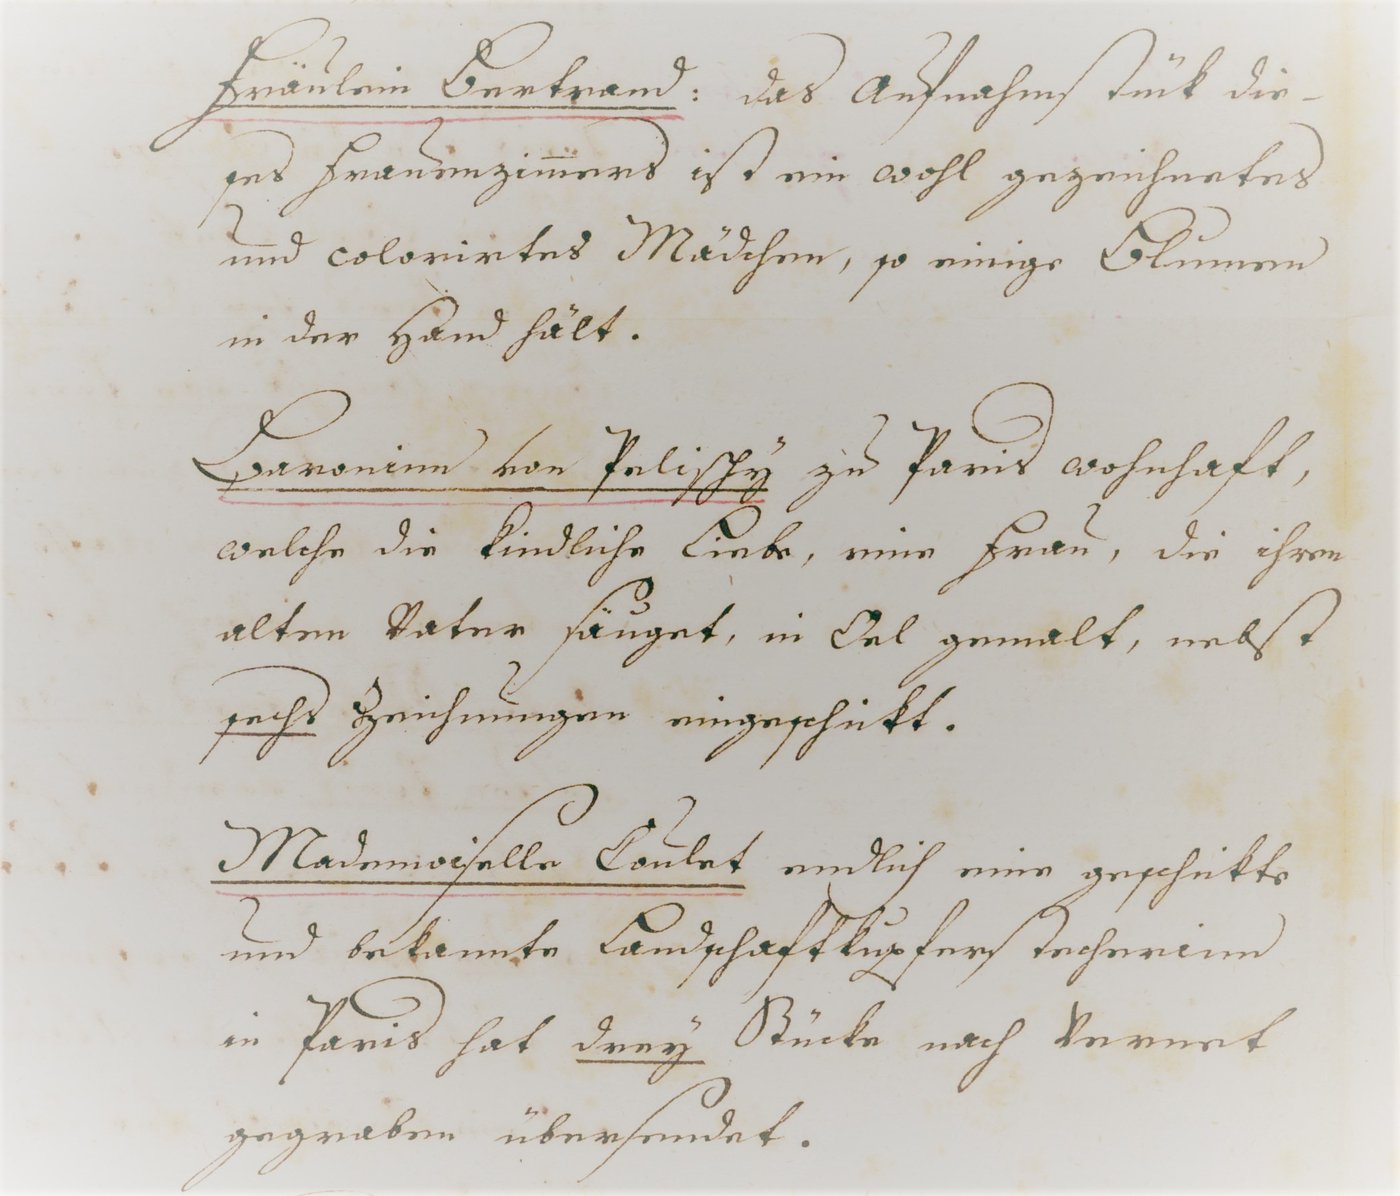 Fräulein Bertrand: das Aufnahmsstück die-
ses Frauenzim̅ers ist ein wohl gezeichnetes
und colorirtes Mädchen, so einige Blumen
in der Hand hält.
Baroninn von Pelischy zu Paris wohnhaft,
welche die kindliche Liebe, eine Frau, die ihren
alten Vater säuget, in Oel gemalt, nebst
sechs Zeichnungen eingeschikt.
Mademoiselle Coulet endlich eine geschikte
und bekannte Landschaftkupferstecherinn
in Paris hat drey Stücke nach Vernet
gegraben übersendet.